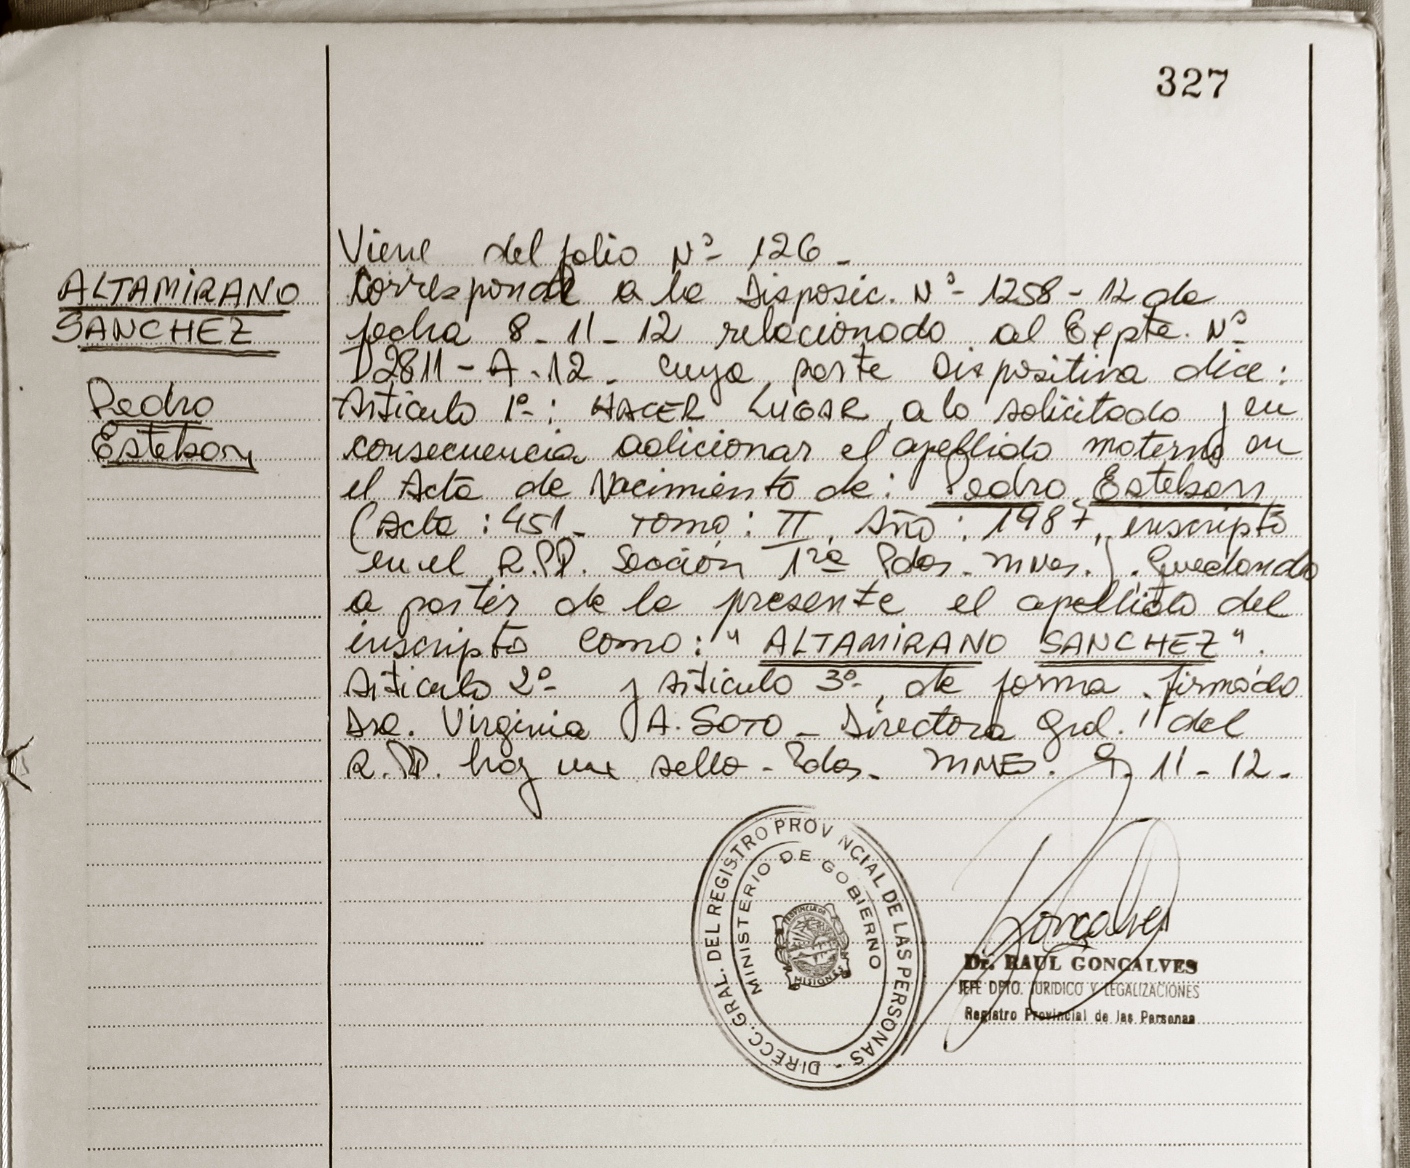 327
ALTAMIRANO
SANCHEZ
Pedro
Esteban
Viene del folio Nº 126.-
Corresponde a la Disposic. Nº- 1258-12 de
fecha 8-11-12 relacionado al Expte. Nº
D2811-A-12. cuya parte Dispositiva dice:
Articulo 1º-: HACER LUGAR a lo solicitado y en
consecuencia adicionar el apellido materno en
el Acta de Nacimiento de: Pedro Esteban
(Acta: 451- Tomo: II, Año: 1987, inscripto
en el R.PP. Sección 1ra Pdas. Mnes.). Quedando
a partir de la presente el apellido del
inscripto como: "ALTAMIRANO SANCHEZ".
Articulo 2º- y Articulo 3º-, de forma. firmado
Dra. Virginia A. SOTO - Directora Gral. del
R.PP. hay un sello - Pdas. MNES. 9-11-12.
DIRECC. GRAL. DEL REGISTRO PROVINCIAL DE LAS PERSONAS -
MINISTERIO DE GOBIERNO
PROVINCIA DE
MISIONES
Gonçalves
Dr. RAUL GONÇALVES
JEFE DPTO. JURIDICO Y LEGALIZACIONES
Registro Provincial de las Personas